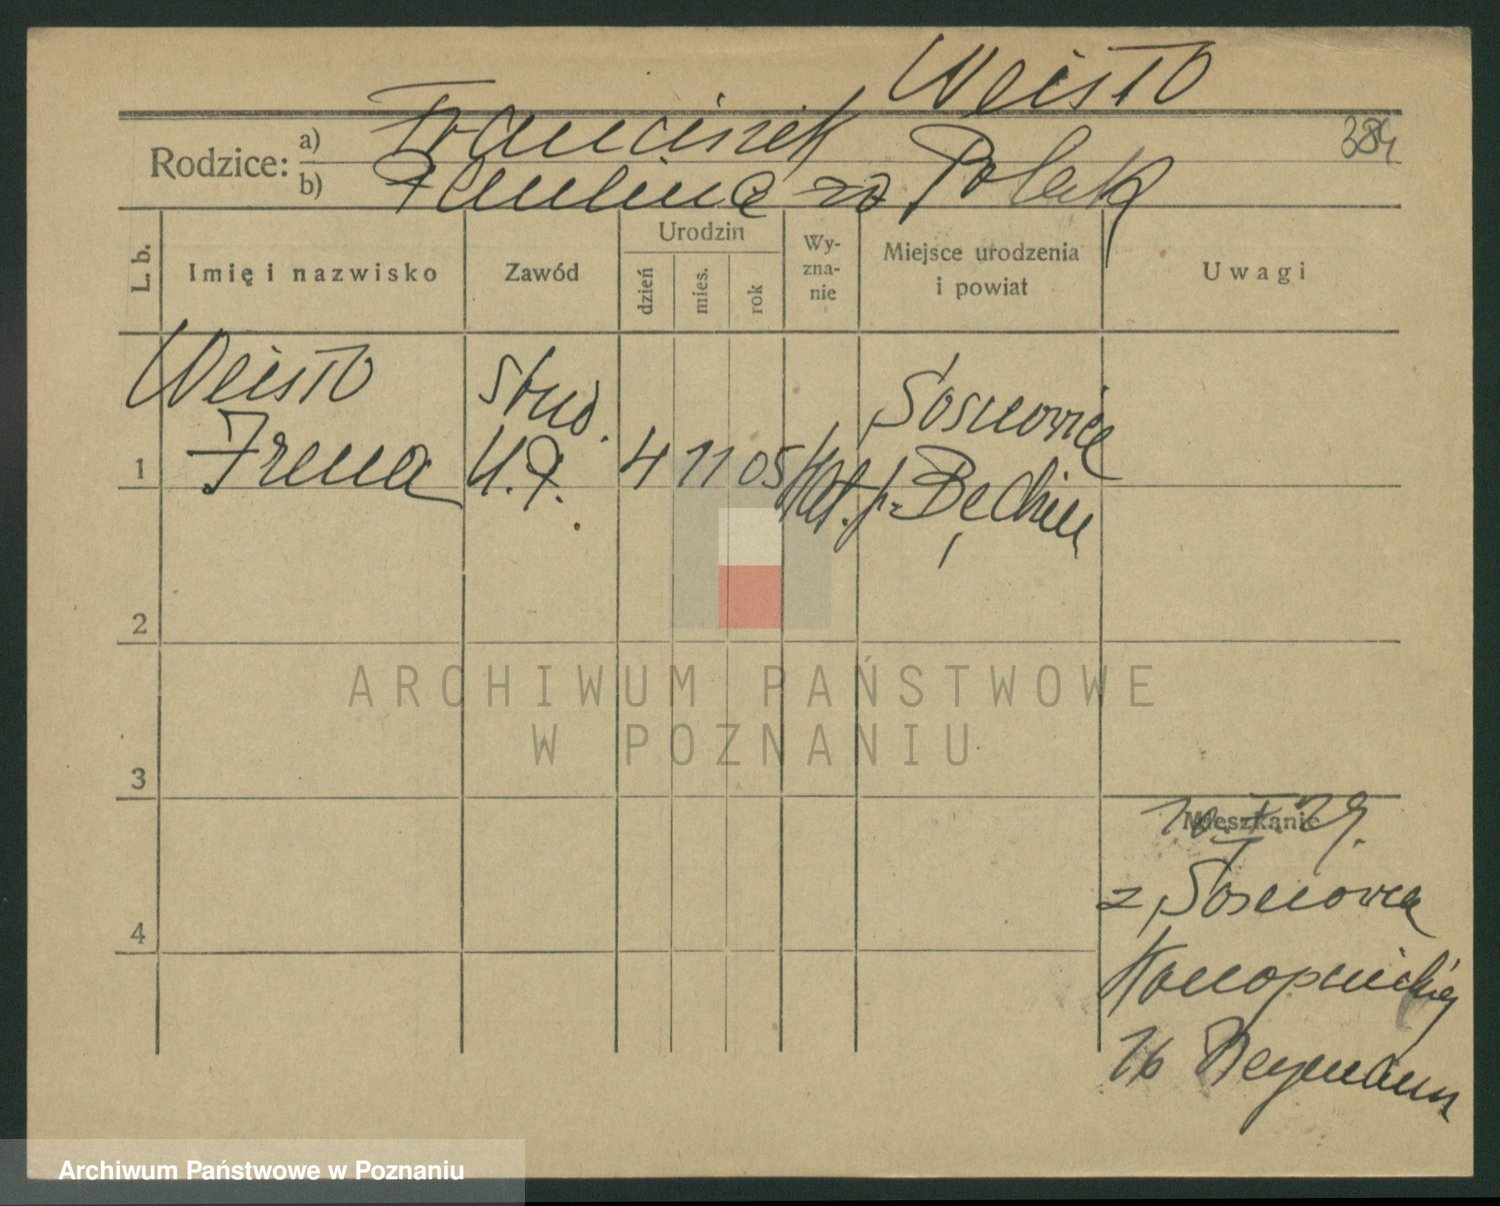 Weisło
384
Rodzice: a) Franciszek
b) Paulina zd Polak
L. b.
Imię i nazwisko
Zawód
Urodzin
dzień
mies.
rok
Wy-
zna-
nie
Miejsce urodzenia
i powiat
Uwagi
Weisło
Irena
stud.
U.P.
4 11 05
Kat.
Sosnowice
p. Będzin
1
2
3
4
Mieszkanie
29.
z Sosnowca
Konopnickiej
16
ARCHIWUM PAŃSTWOWE
W POZNANIU
Archiwum Państwowe w Poznaniu